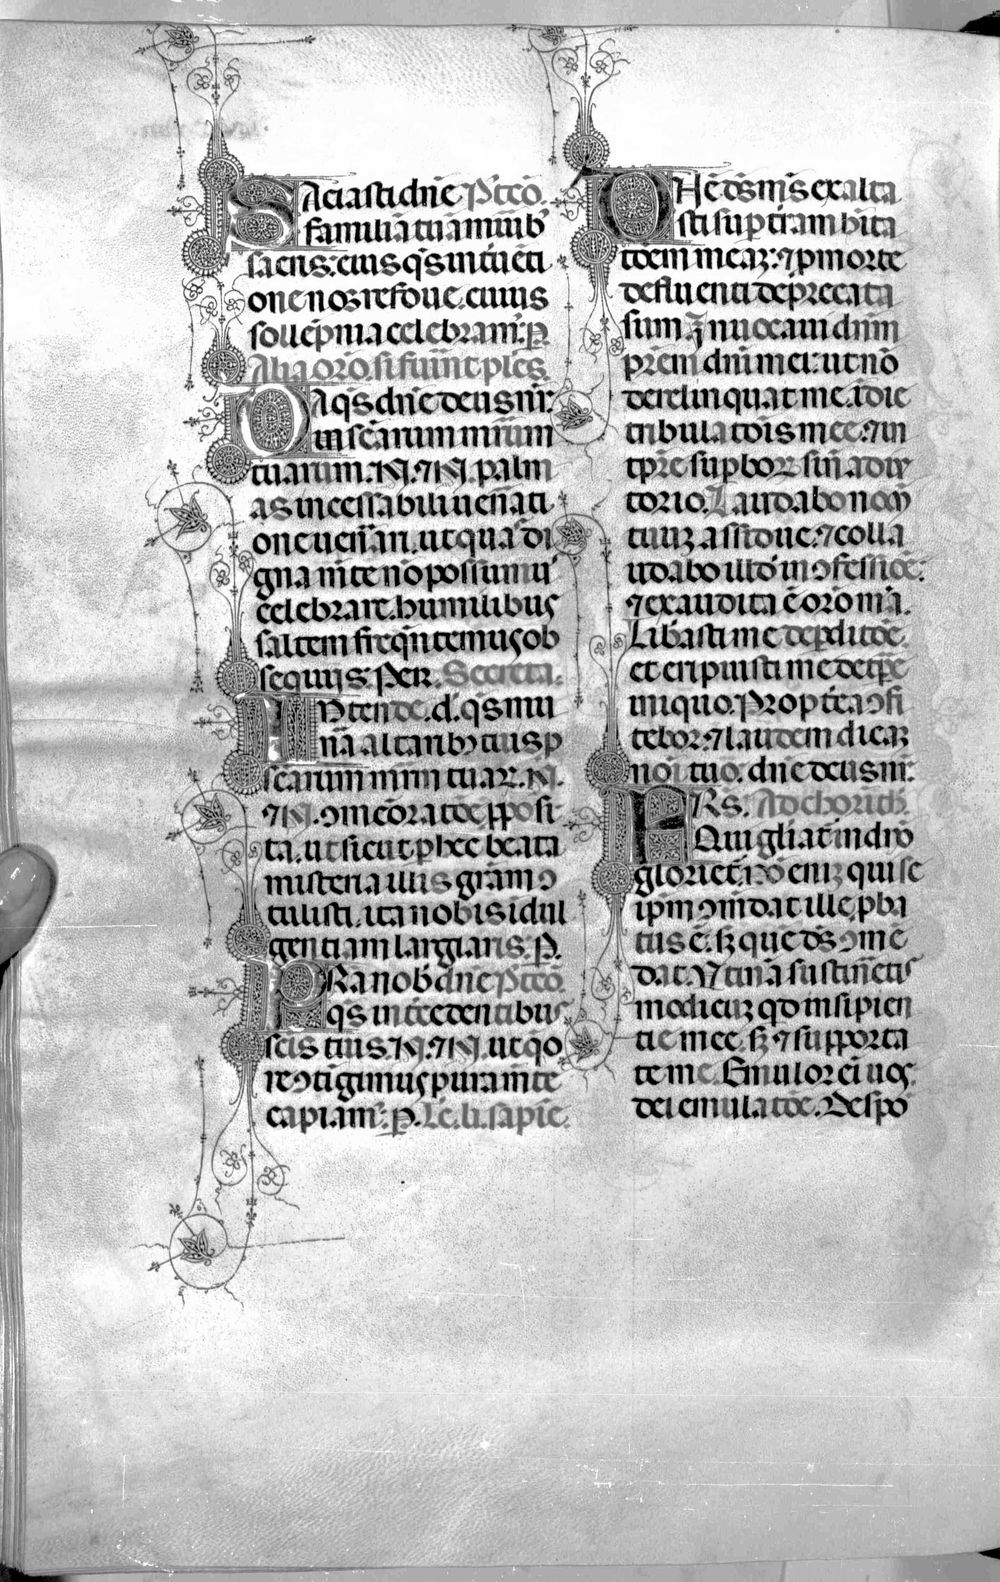 Saciasti dñe Pꝰtcõ.
familiã tuã munib᾽
sacris: eius q̃s intĩuẽti
one nos refoue. cuius
sollẽpnia celebram᾽. P̱
Alia orõ. si fuĩnt plẽs.
Da q̃s dñe deus nr̃:
in scãrum mr̃um
tuarum .N. ⁊ .N. palm
as incessabili uen̄ati
one uen̄ari. ut qua di
gna m̃te nõ possumu᾽
celebrare. humilibus
saltem freq̃ntemus ob
sequijs: Per. Secreta.
Intende. d. q̃s mu
nã altarib᾽ tuis p
scãrum mr̃m tuaꝝ .N.
⁊ .N. ꝯmẽoratõe ꝓposi
ta. ut sicut ꝑ hec beata
misteria illis gr̃am ꝯ
tulisti. ita nobis idul
gentiam largiaris. P̱.
Pra nob̃ dñe Pꝰtcõ.
q̃s intcedentibus
scĩs tuis .N. ⁊ .N. ut q̃ õ
re ꝯtigimus pura m̃te
capiam᾽. P̱. Lc̃. li. sapiẽ.
Dñe ds̃ ms̃ exalta
sti sup̱ tr̃am hĩta
tõem meaȝ: ⁊ ꝓ morte
defluenti dep̃cata
sum. Inuocaui dñm
pr̃em dñi mei: ut nõ
derelinquat me. ĩ die
tribulatõis mee: ⁊ in
tp̃re sup̱boꝝ sin̄ adiu
torio. Laudabo nom̃
tuuȝ assidue: ⁊ colla
udabo illd̃ in ꝯfessiõe:
⁊ exaudita ẽ orõ mã.
Lib̃asti me de ꝑditõe
et eripuisti me de tp̃e
iniquo. Proptea ꝯfi
tebor: ⁊ laudem dicaȝ
noĩ tuo. dñe deus nr̃.
Frs̃. Ad chorinth̃.
Qui gl̃iat̃ in dño
gloriet̃. nõ eniȝ qui se
ip̃m ꝯmdat ille pba
tus ẽ. sȝ que ds̃ ꝯmẽ
dat. Utinã sustin̄etis
modicuȝ qd̃ insipien
tie mee. sȝ ⁊ supporta
te me. Emulor eĩ uos
dei emulatõe. Despõ